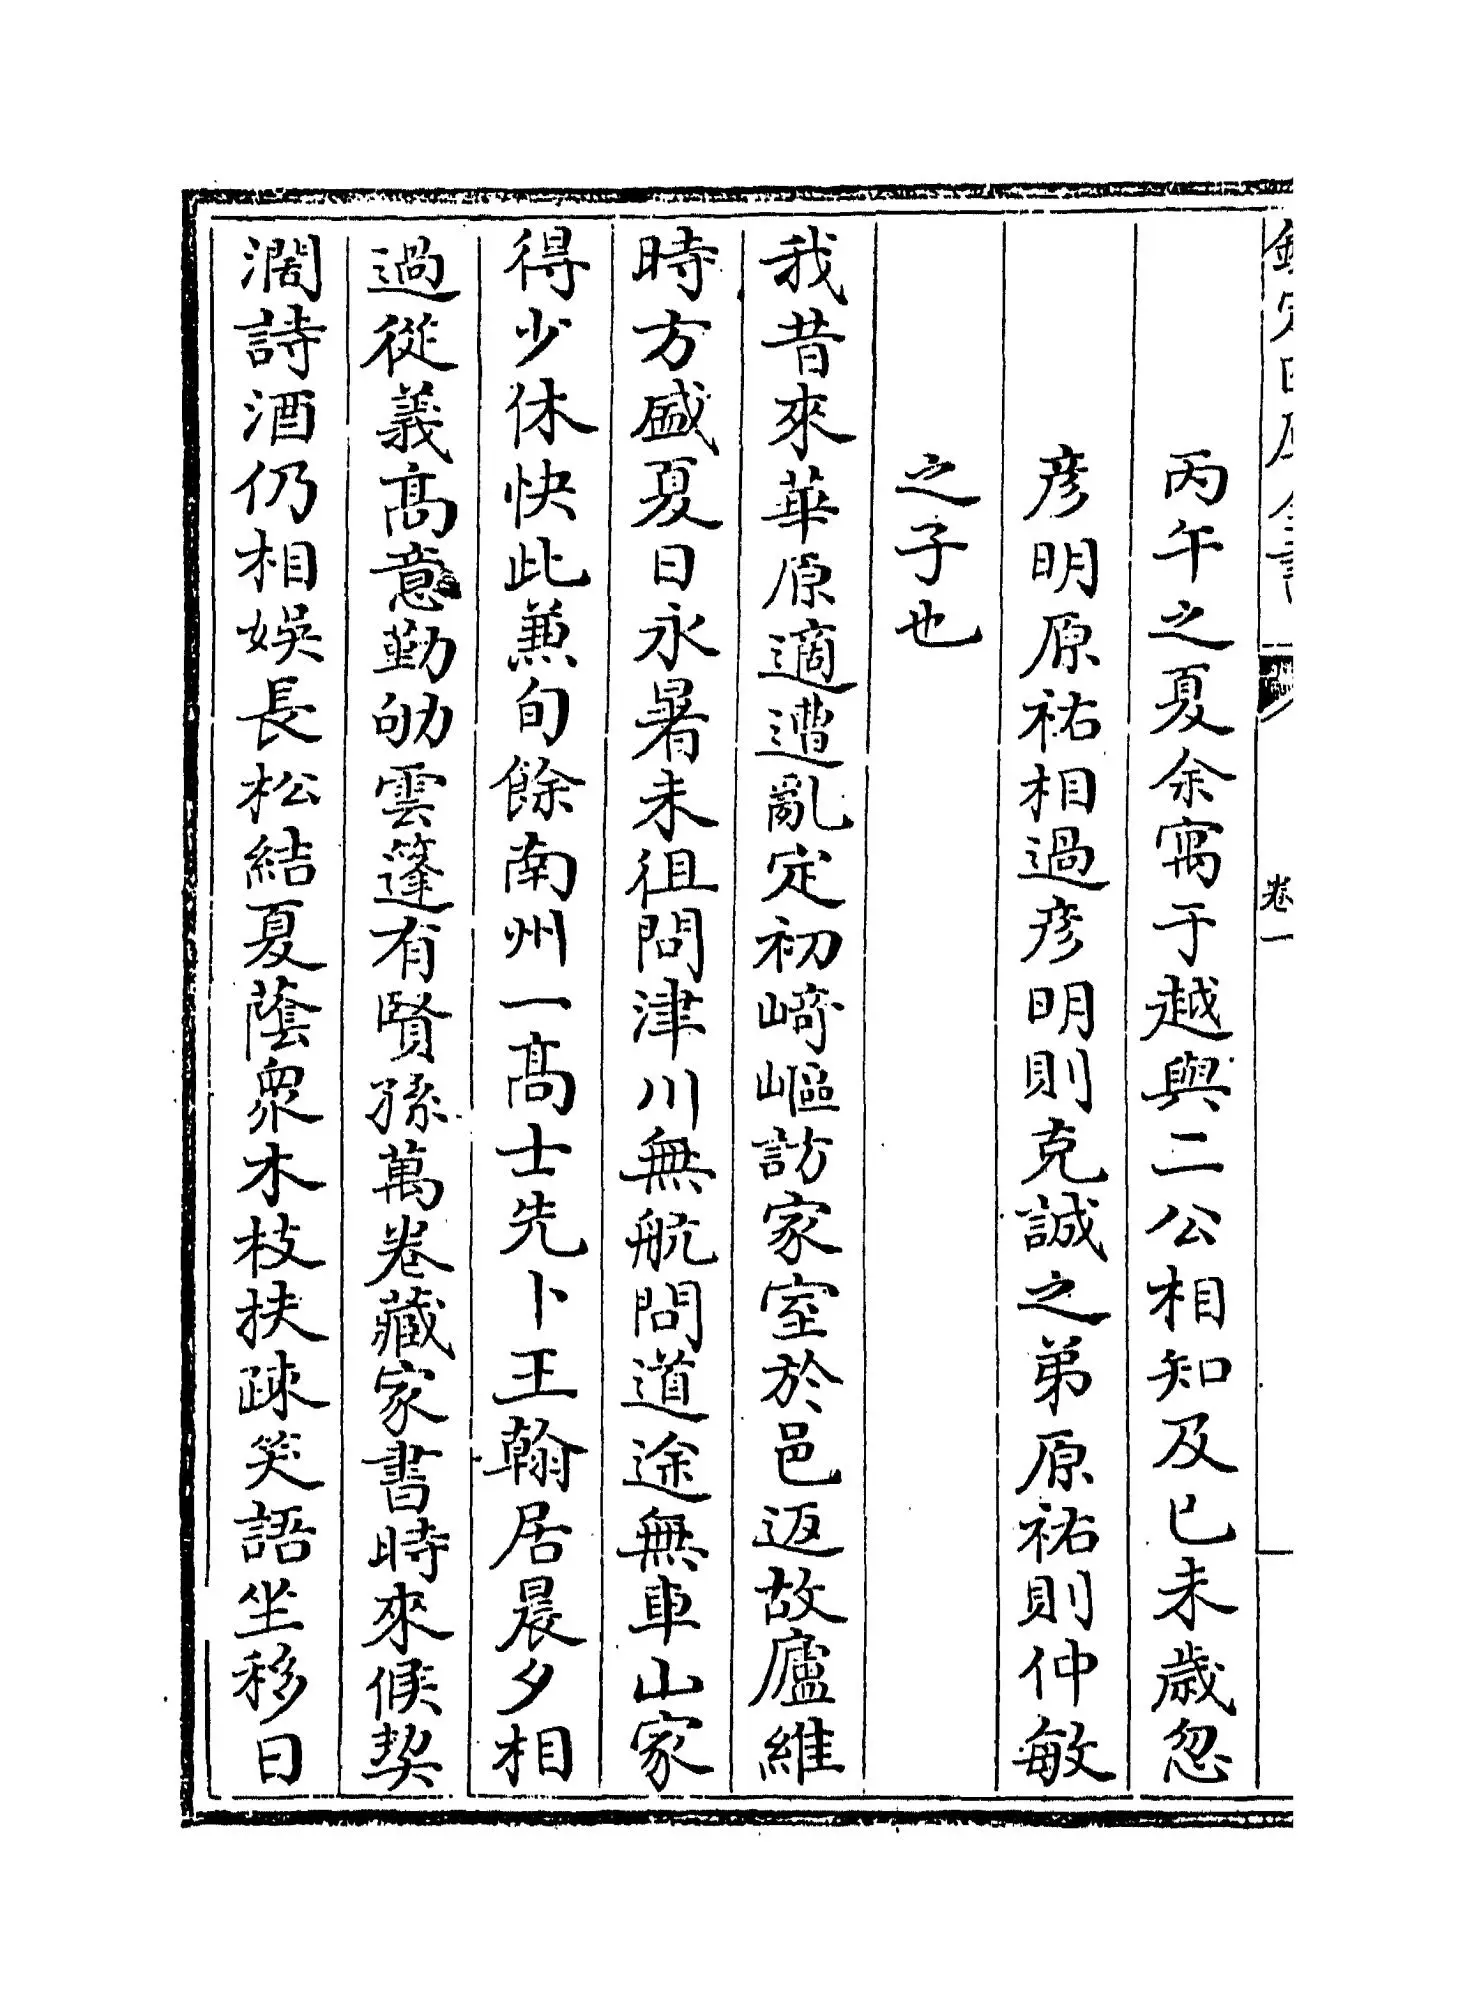 欽定四庫全書
卷一
丙午之夏余寓于越與二公相知及已未歲忽
彦明原祐相過彦明則克誠之弟原祐則仲敏
之子也
我昔來華原適遭亂定初﨑嶇訪家室於邑返故廬維
時方盛夏日永暑未徂問津川無航問道途無車山家
得少休快此兼旬餘南州一髙士先卜王翰居晨夕相
過從義髙意勤劬雲篷有賢孫萬卷藏家書時來候契
濶詩酒仍相娱長松結夏蔭衆木枝扶疎笑語坐移日